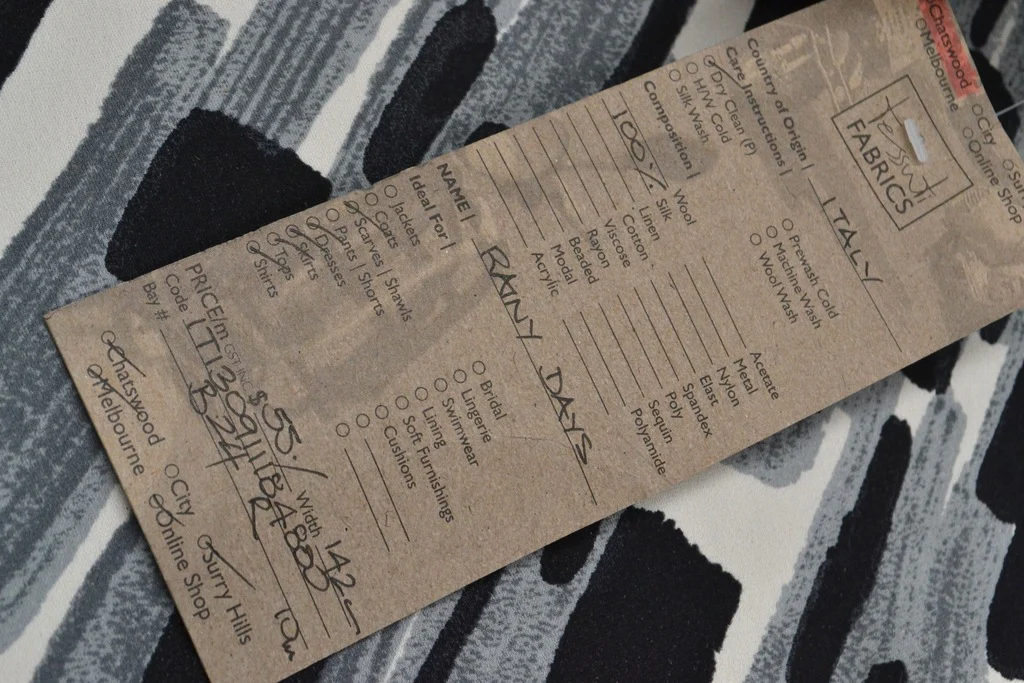 Chatswood
Melbourne
City
Online Shop
Tessuti
FABRICS
Country of Origin | ITALY
Care Instructions |
Dry Clean (P)
H/W Cold
Silk Wash
Prewash Cold
Machine Wash
Wool Wash
Composition |
Wool
100% Silk
Linen
Cotton
Viscose
Rayon
Beaded
Modal
Acrylic
Acetate
Metal
Nylon
Elast
Spandex
Poly
Sequin
Polyamide
NAME | RAINY DAYS
Ideal For |
Jackets
Coats
Scarves | Shawls
Pants | Shorts
Dresses
Skirts
Tops
Shirts
Bridal
Lingerie
Swimwear
Lining
Soft Furnishings
Cushions
PRICE/m $55./ Width 142cm
Code
Bay # B24 10m
Chatswood
Melbourne
City
Online Shop
Surry Hills